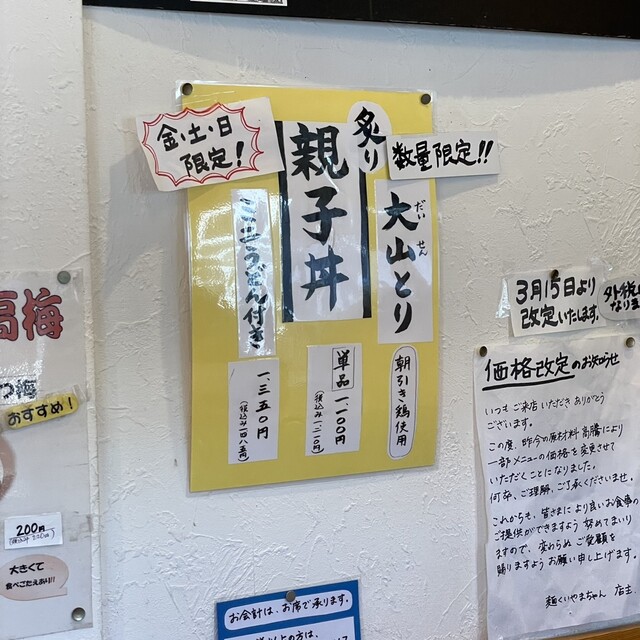 金・土・日
限定!
炙り
親子丼
数量限定!!
大山とり
だいせん
朝引き鶏使用
ミニうどん付き
単品
一、一〇〇円
(税込み一二一〇円)
一、三五〇円
(税込み一四八五円)
高梅
つ梅
おすすめ!
200円
(税込み220円)
大きくて
食べごたえあり!!
お会計は、お席で承ります。
3月15日より
改定いたします。
外税
なりま
価格改定のお知らせ
いつもご来店いただきありがとう
ございます。
この度、昨今の原材料高騰により
一部メニューの価格を変更させて
いただくことになりました。
何卒、ご理解、ご了承くださいませ。
これからも、皆さまにより良いお食事の
ご提供ができますよう努めてまいり
ますので、変わらぬご愛顧を
賜りますようお願い申し上げます。
麺くいやまちゃん 店主